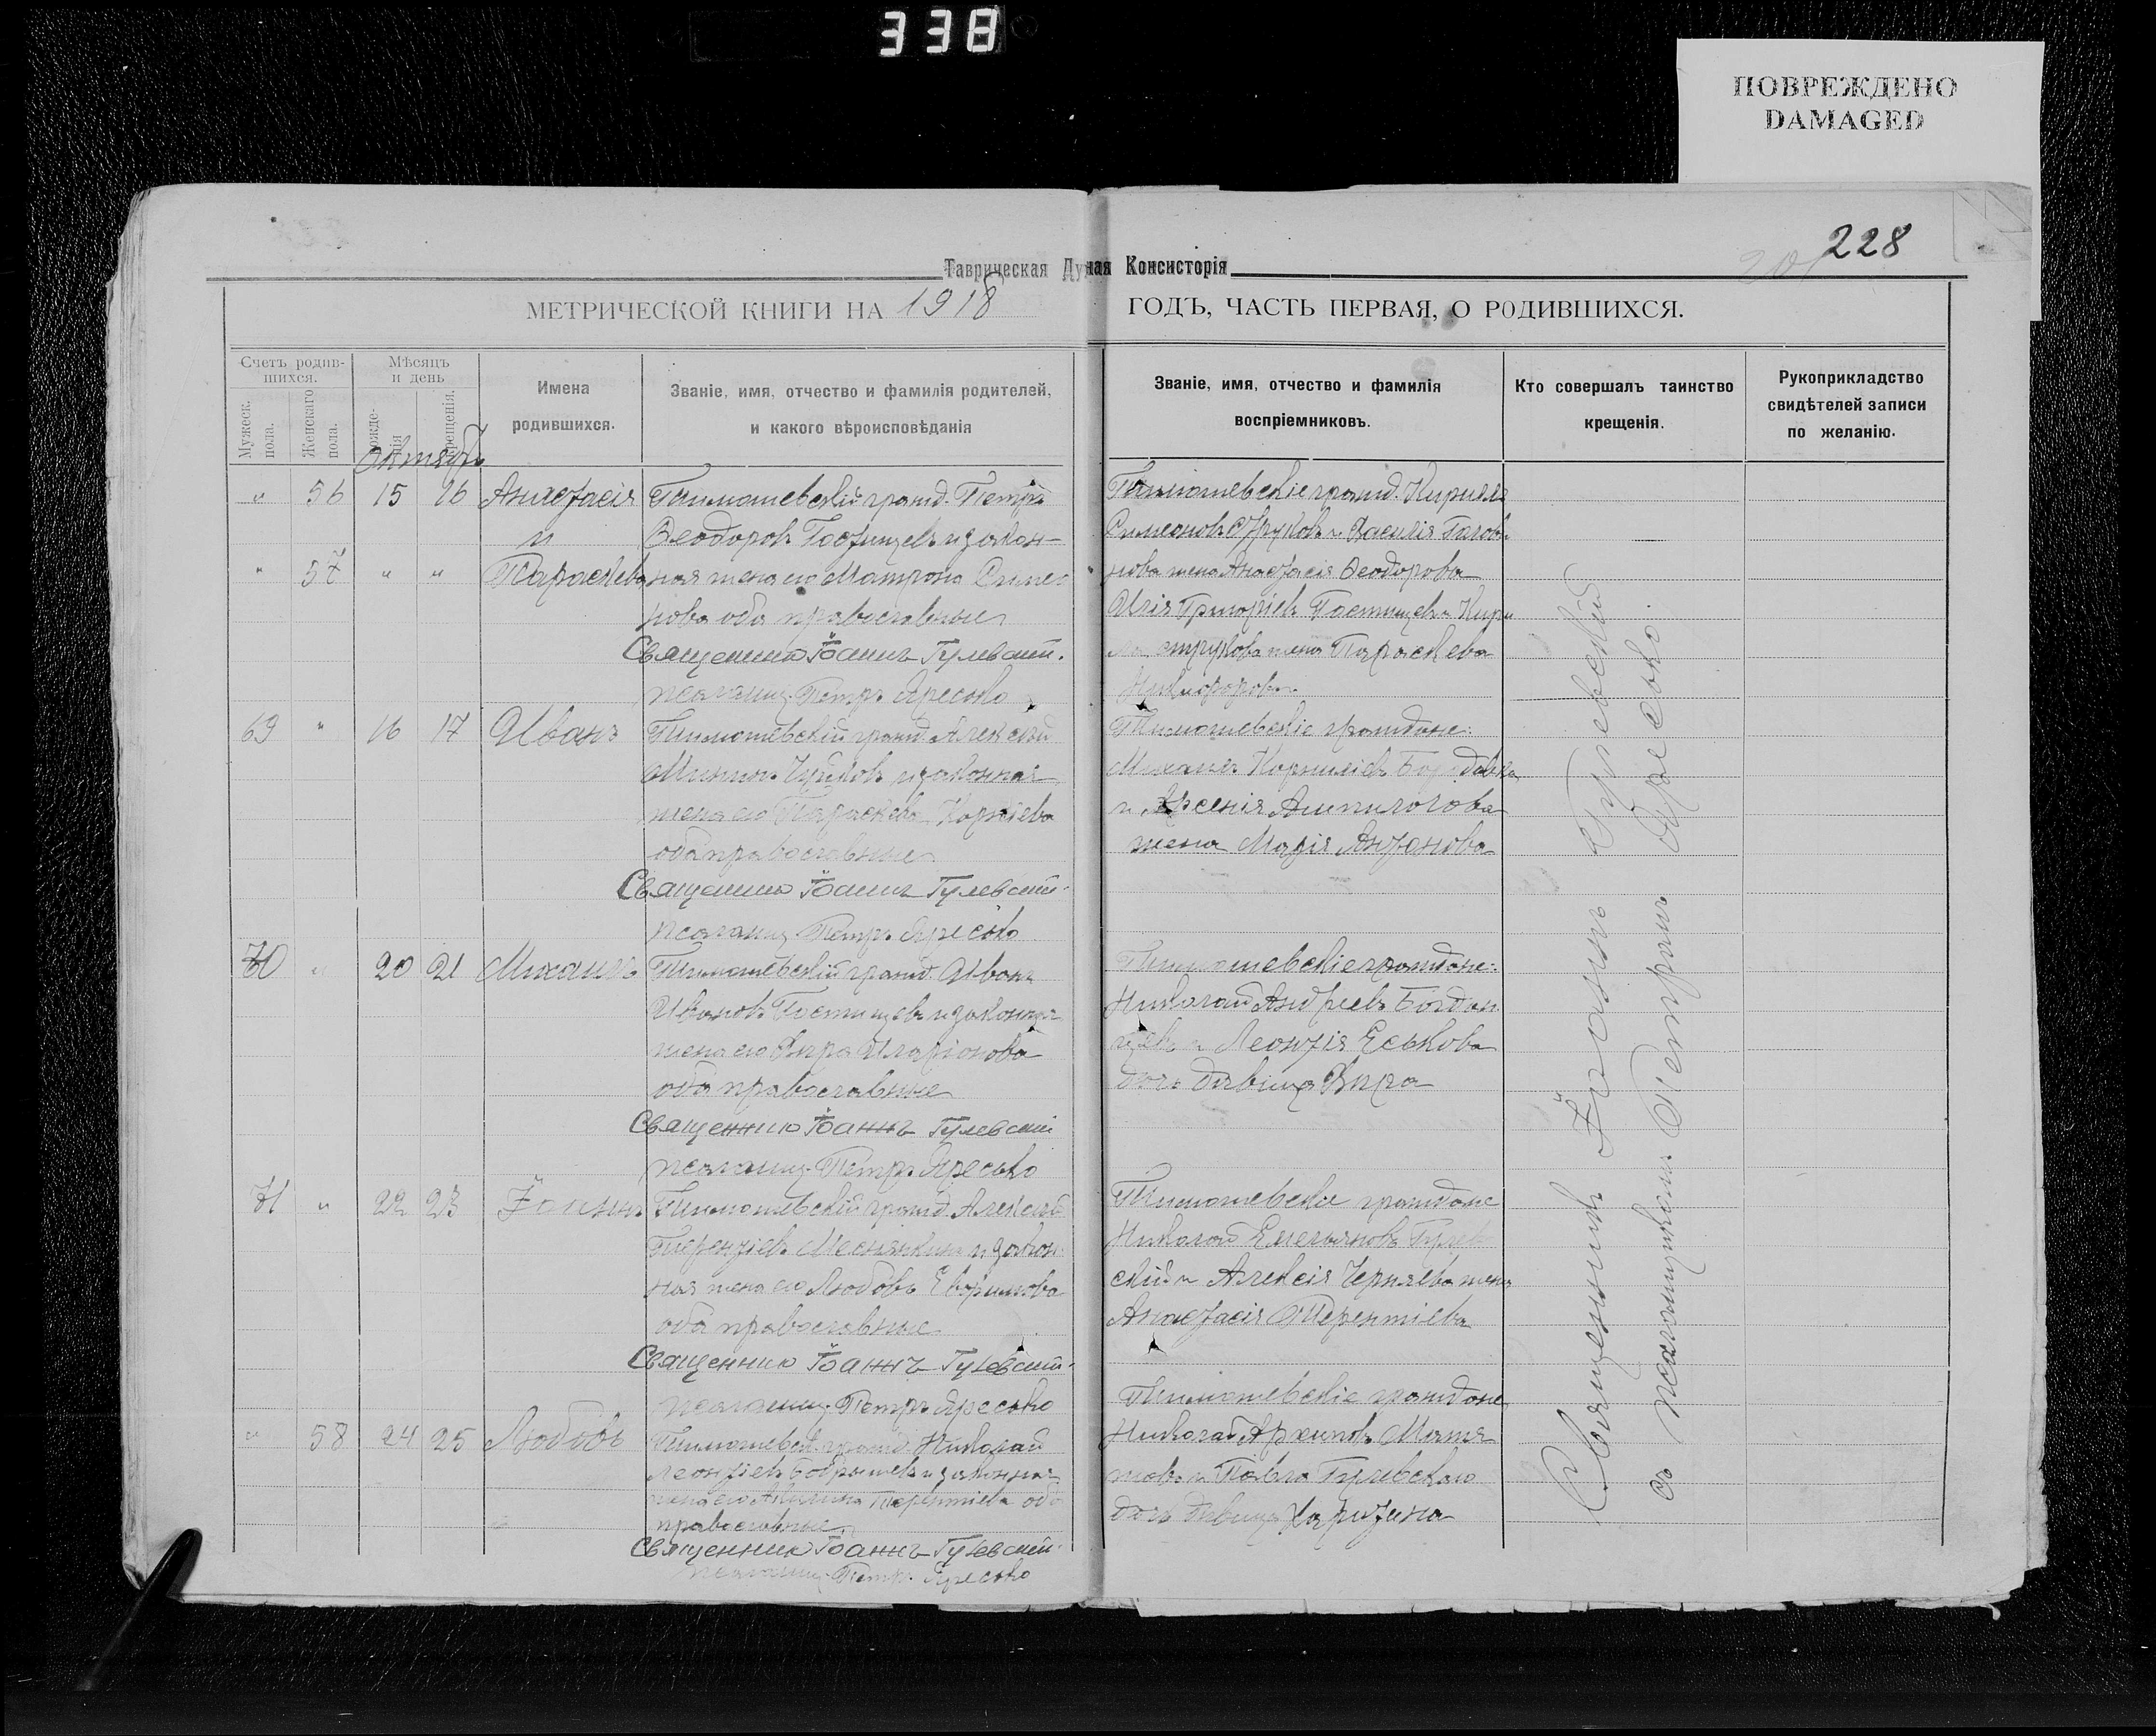 338
ПОВРЕЖДЕНО
DAMAGED
228
Таврическая Духная Консисторія
МЕТРИЧЕСКОЙ КНИГИ НА 1918 ГОДЪ, ЧАСТЬ ПЕРВАЯ, О РОДИВШИХСЯ.
Счетъ родив-
шихся.
Мужеск. пола.
Женскаго пола.
Мѣсяцъ
и день
рожде-
нія
крещенія.
Имена
родившихся.
Званіе, имя, отчество и фамилія родителей,
и какого вѣроисповѣданія
Званіе, имя, отчество и фамилія
воспріемниковъ.
Кто совершалъ таинство
крещенія.
Рукоприкладство
свидѣтелей записи
по желанію.
Октябрь
" 56 15 16 Анастасія
Тимошевскій гражд. Петръ
и
Ѳеодоровъ Гостищевъ и закон-
" 57 " " Параскева
ная жена его Матрона Симео
нова оба православные
Священникъ Іоаннъ Гулевскій.
псаломщ. Петръ Яресько
Тимошевскіе гражд. Кирилъ
Симеоновъ Струковъ и Василія
жена Анастасія Ѳеодорова
Илія Григоріевъ Гостищевъ и Кири
ла Струкова жена Параскева
Никифорова
69 " 16 17 Иванъ
Тимошевскій гражд. Алексѣй
и законная
жена его Параскева Корніева
оба православные
Священникъ Іоаннъ Гулевскій.
псаломщ. Петръ Яресько
Тимошевскіе граждане:
Михаилъ Корниліевъ
и Арсенія
жена Марія Антонова
70 " 20 21 Михаилъ
Тимошевскій гражд. Иванъ
Ивановъ Гостищевъ и законная
жена его Вѣра Иларіонова
оба православные
Священникъ Іоаннъ Гулевскій
псаломщ. Петръ Яресько
Тимошевскіе граждане:
Николай Андреевъ Богдан
цевъ и Леонтія Еськова
дочь дѣвица Вѣра
71 " 22 23 Іоаннъ
Тимошевскій гражд. Алексѣй
Терентіевъ Меснянкинъ и закон-
ная жена его Любовь Евфимова
оба православные
Священникъ Іоаннъ Гулевскій.
псаломщ. Петръ Яресько
Тимошевскіе граждане
Николай Емельяновъ Гулев
скій и Алексія Черняева жена
Анастасія Терентіева
" 58 24 25 Любовь
Тимошевск. гражд. Николай
Леонтіевъ и законная
жена его Акилина Терентіева оба
православные
Священникъ Іоаннъ Гулевскій.
псаломщ. Петръ Яресько
Тимошевскіе граждане
Николай Архиповъ
и Павла Гулевскаго
дочь дѣвица Харитина
Священникъ Іоаннъ Гулевскій
съ псаломщикомъ Петромъ Яресько.